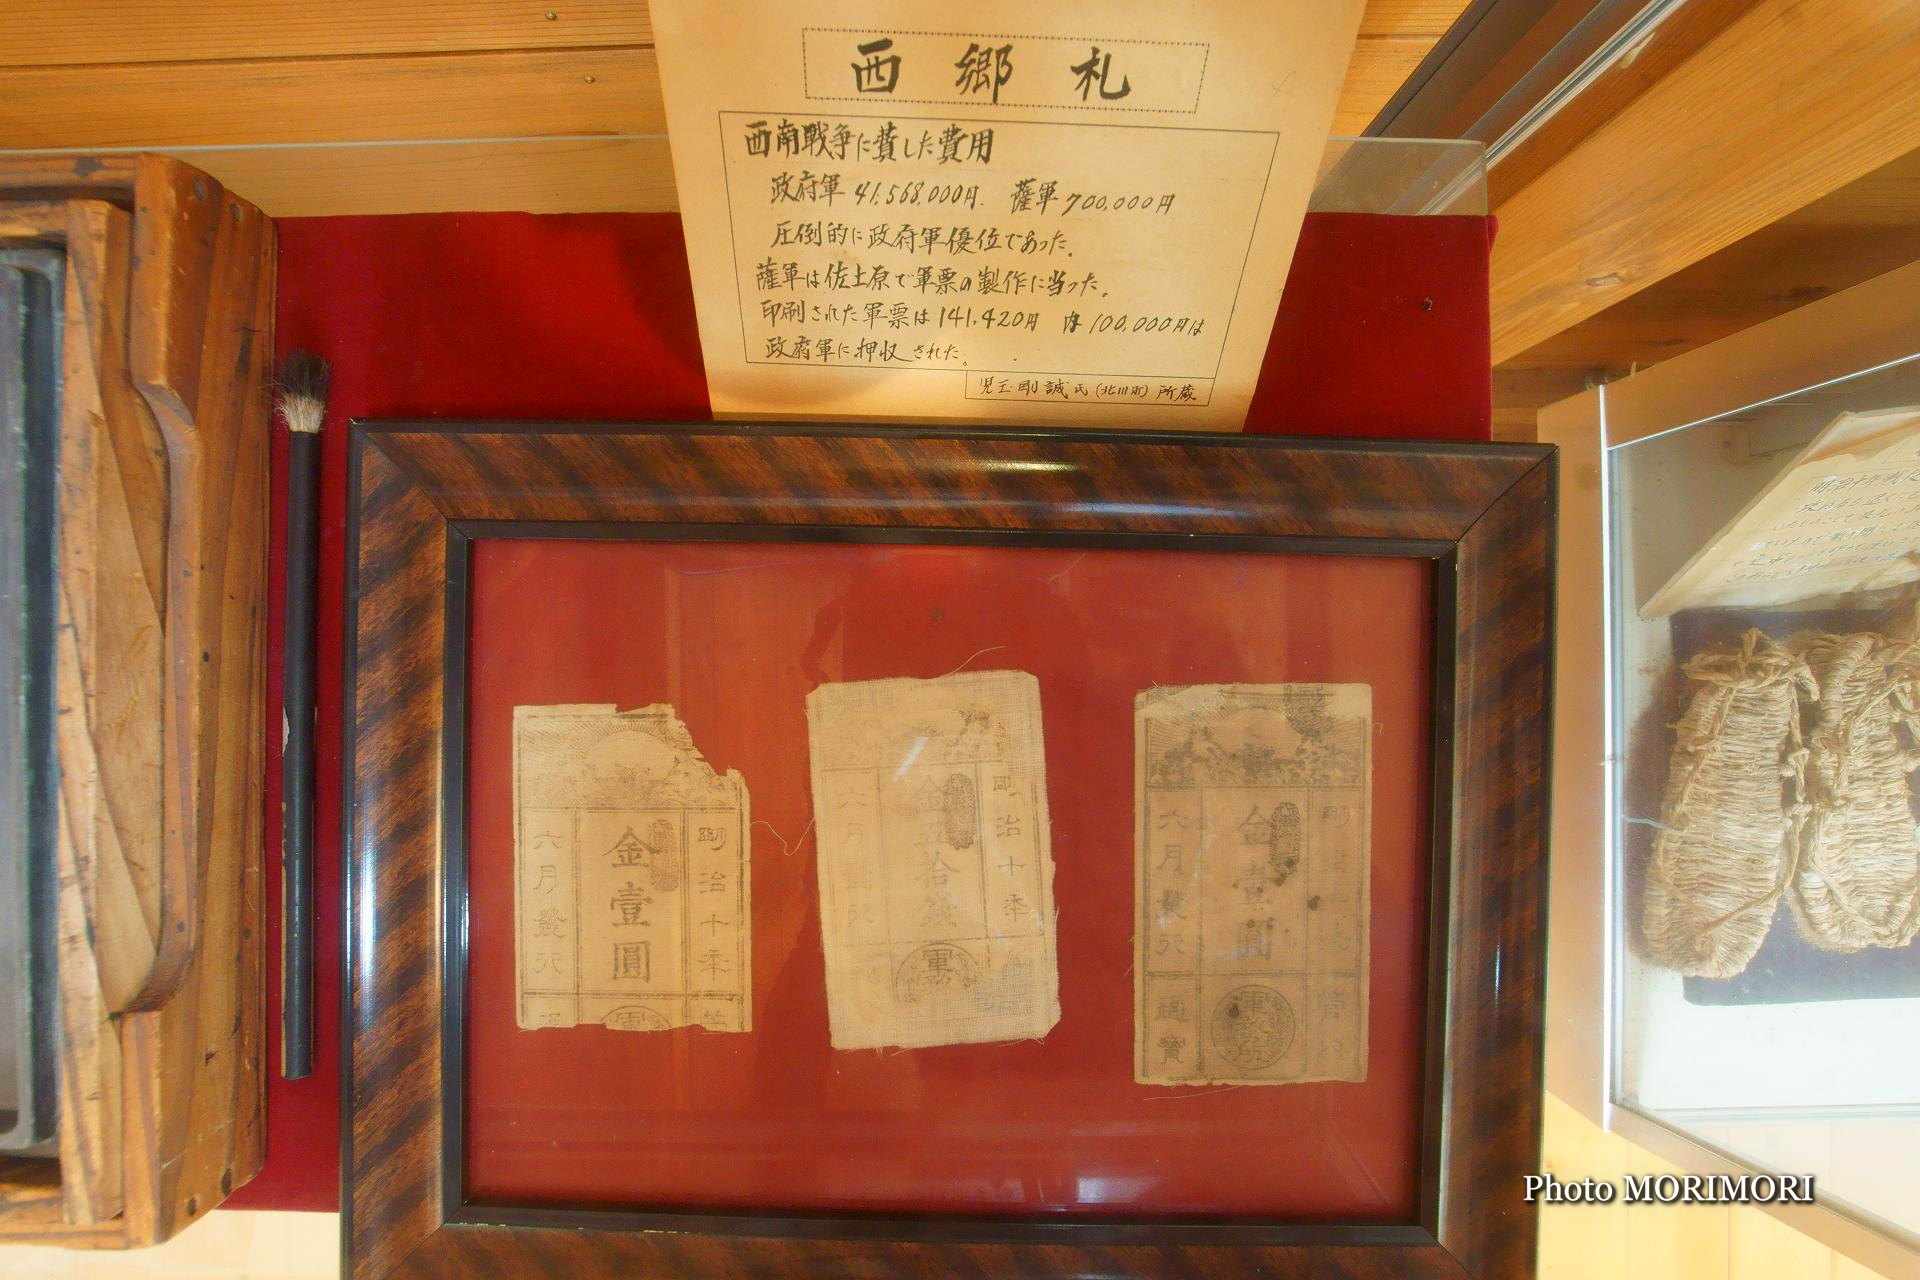 西郷札
西南戦争に費した費用
政府軍 41,568,000円. 薩軍 700,000円
圧倒的に政府軍優位であった。
薩軍は佐土原で軍票の製作に当った。
印刷された軍票は141,420円 内100,000円は
政府軍に押収された。
児玉剛誠氏(北川町)所蔵
明治十年
金壹圓
六月發行
明治十年
金五拾錢
六月發行
軍務
金壹圓
六月發行
通寳
軍務所
Photo MORIMORI